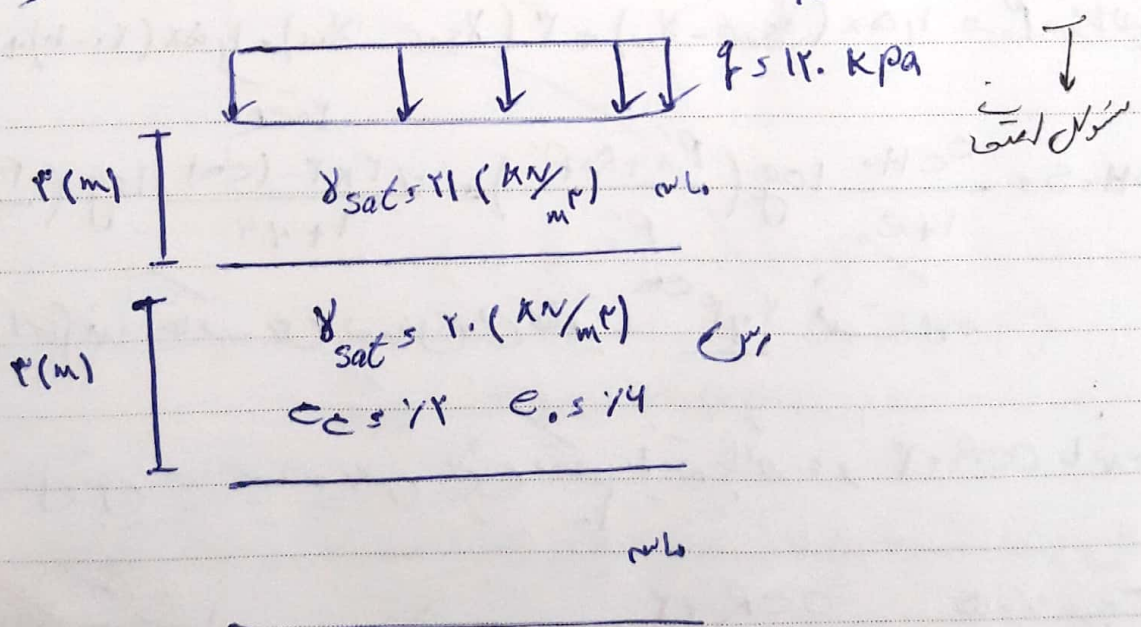 q = ۱۲۰ kpa
سوال امتحان
۳(m)
γsat = ۲۱ (kN/m۳) ماسه
۳(m)
γsat = ۲۰ (kN/m۳) رس
Cc = ٫۲ e۰ = ٫۶
ماسه